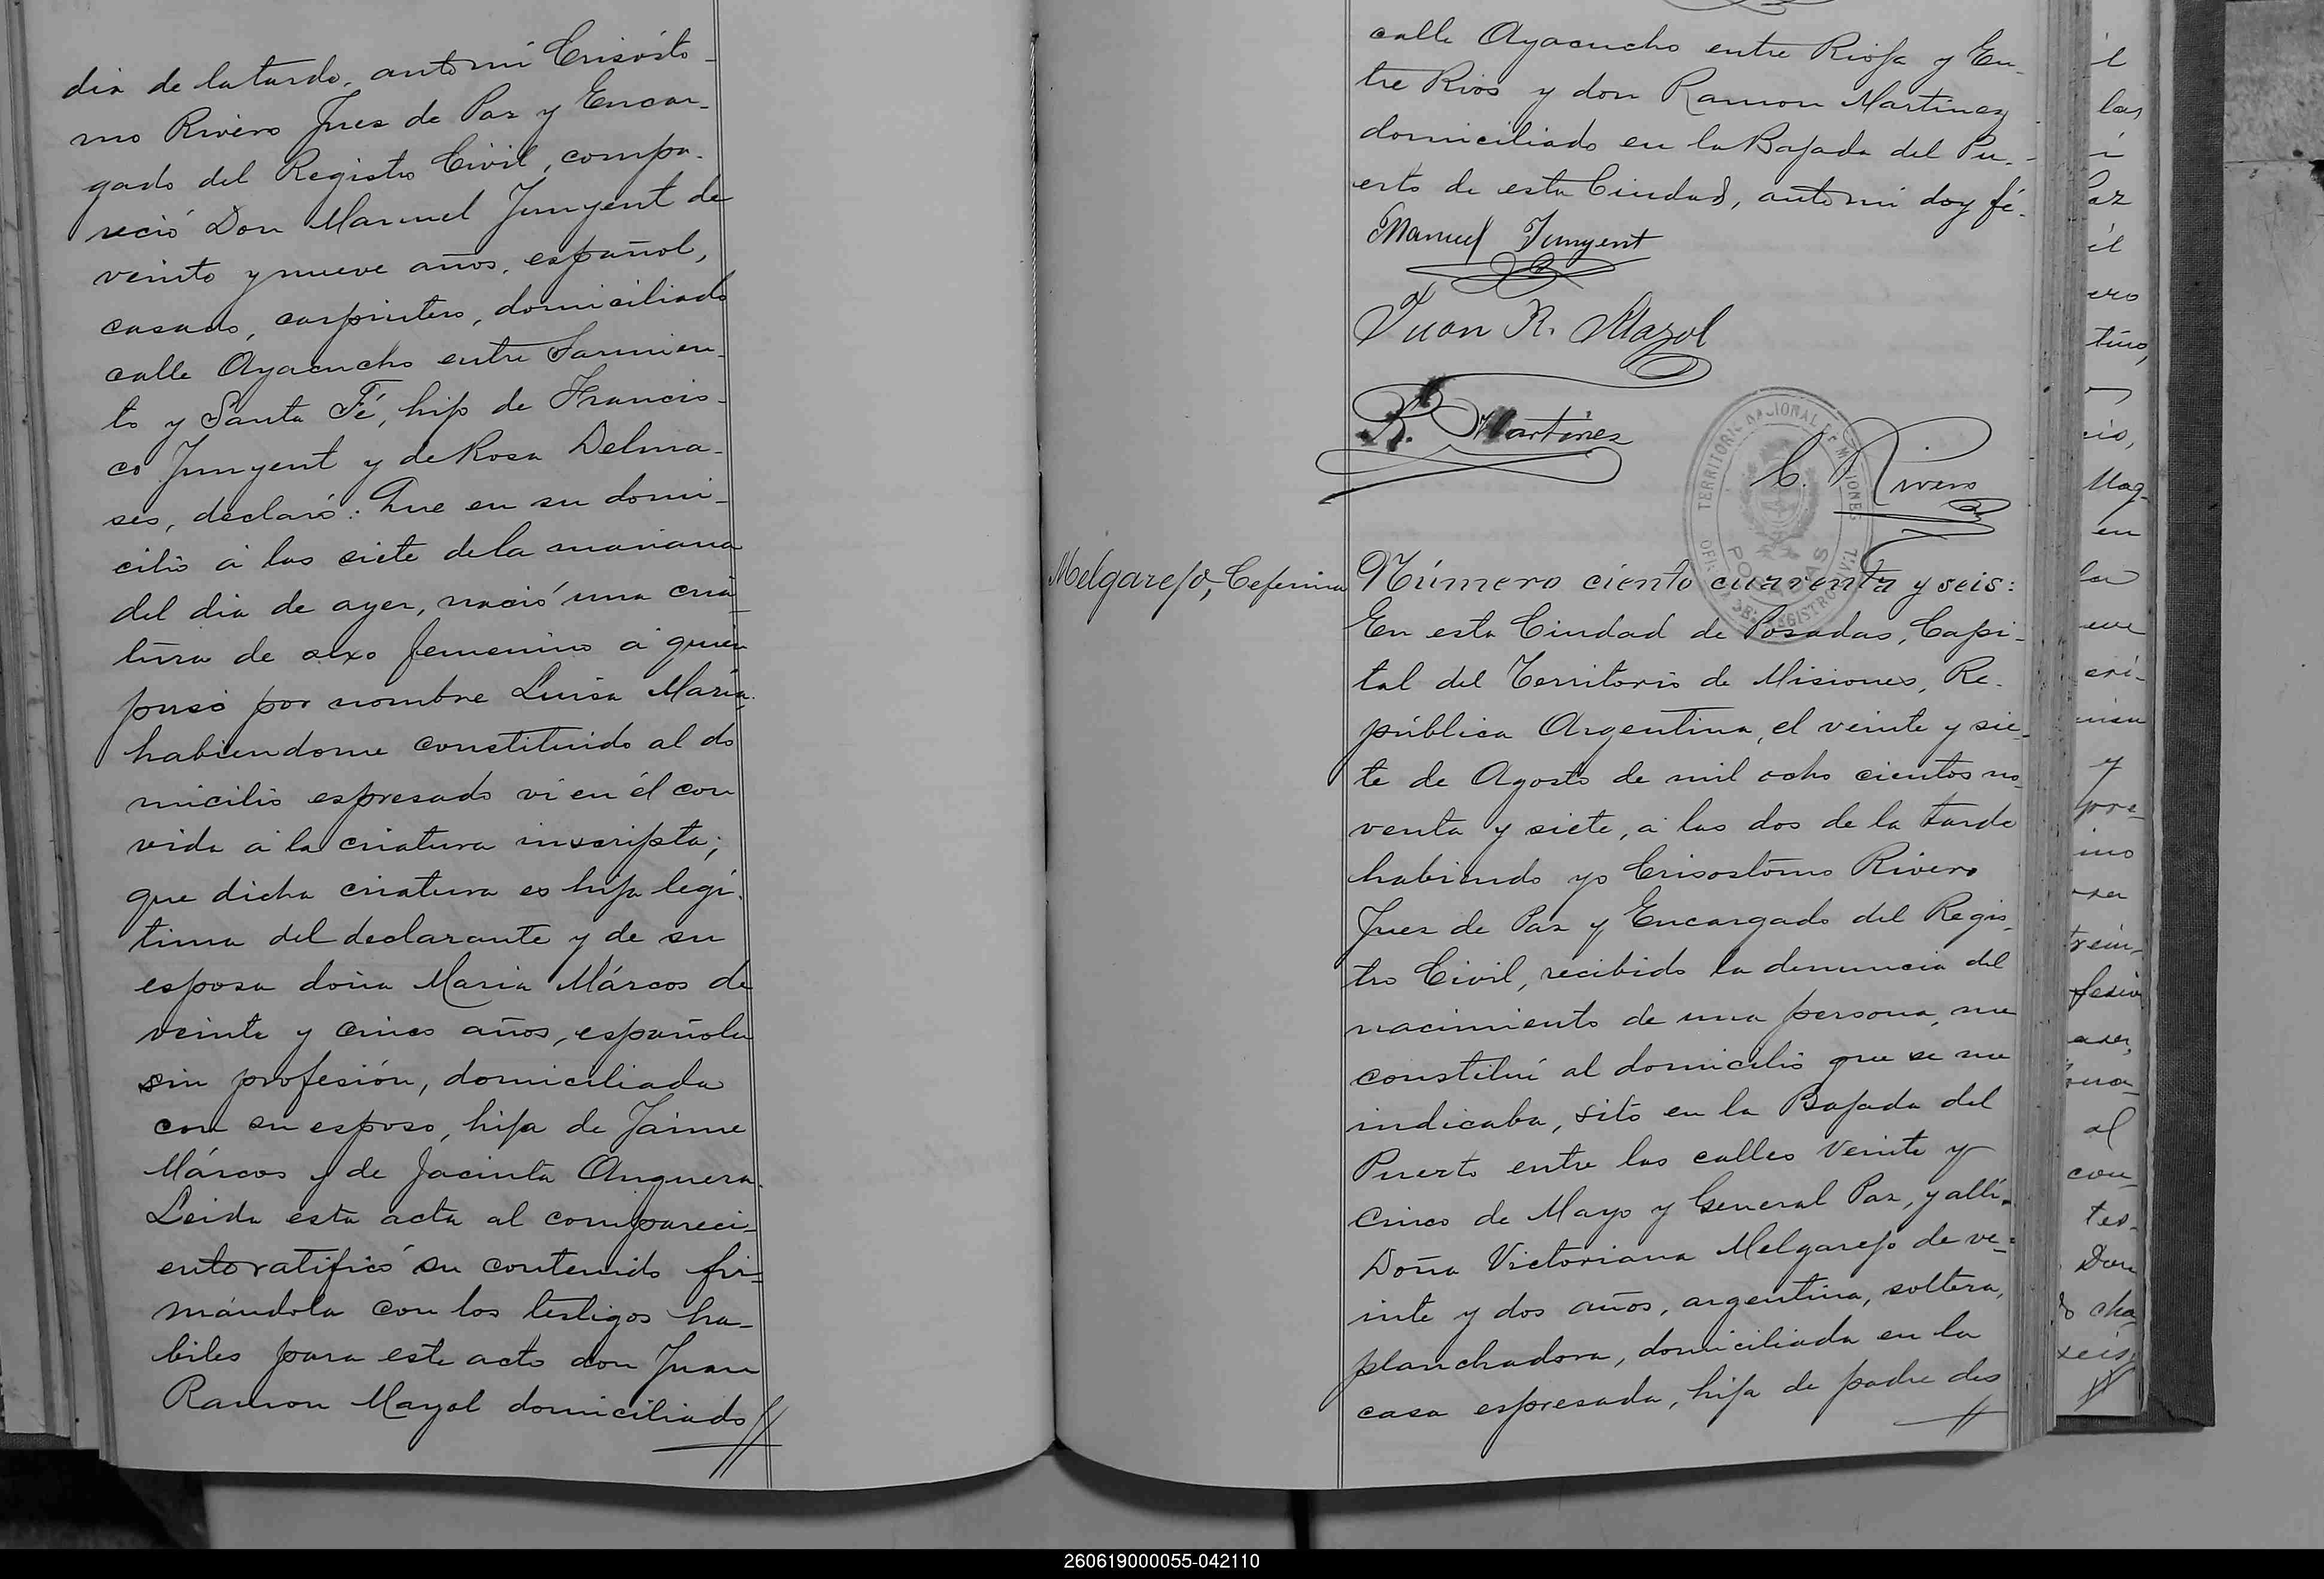 dia de la tarde, ante mi Crisósto-
mo Rivero Juez de Paz y Encar-
gado del Registro Civil, compa-
reció Don Manuel Junyent de
veinte y nueve años, español,
casado, carpintero, domiciliado
calle Ayacucho entre Sarmien-
to y Santa Fé, hijo de Francis-
co Junyent y de Rosa Delma-
ses, declaró: Que en su domi-
cilio á las siete de la mañana
del dia de ayer, nació una cria-
tura de sexo femenino á quien
puso por nombre Luisa María,
habiendome constituido al do
micilio espresado ví en él con
vida á la criatura inscripta;
que dicha criatura es hija legí-
tima del declarante y de su
esposa doña Maria Márcos de
veinte y cinco años, española
sin profesión, domiciliada
con su esposo, hija de Jaime
Márcos y de Jacinta Anguera.
Leida esta acta al compareci-
ente ratificó su contenido fir-
mándola con los testigos ha-
biles para este acto don Juan
Ramon Mayol domiciliado
calle Ayacucho entre Rioja y En-
tre Rios y don Ramon Martinez
domiciliado en la Bajada del Pu-
erto de esta Ciudad, ante mi doy fé.
Manuel Junyent
Juan R. Mayol
R. Martinez
C. Rivero
TERRITORIO NACIONAL DE MISIONES
POSADAS
Melgarejo, Ceferina
Número ciento cuarenta y seis:
En esta Ciudad de Posadas, Capi-
tal del Territorio de Misiones, Re-
pública Argentina, el veinte y sie-
te de Agosto de mil ocho cientos no-
venta y siete, á las dos de la tarde
habiendo yo Crisostomo Rivero
Juez de Paz y Encargado del Regis-
tro Civil, recibido la denuncia del
nacimiento de una persona, me
constituí al domicilio que se me
indicaba, sito en la Bajada del
Puerto entre las calles Veinte y
Cinco de Mayo y General Paz, y allí
Doña Victoriana Melgarejo de ve-
inte y dos años, argentina, soltera,
planchadora, domiciliada en la
casa espresada, hija de padre des
260619000055-042110